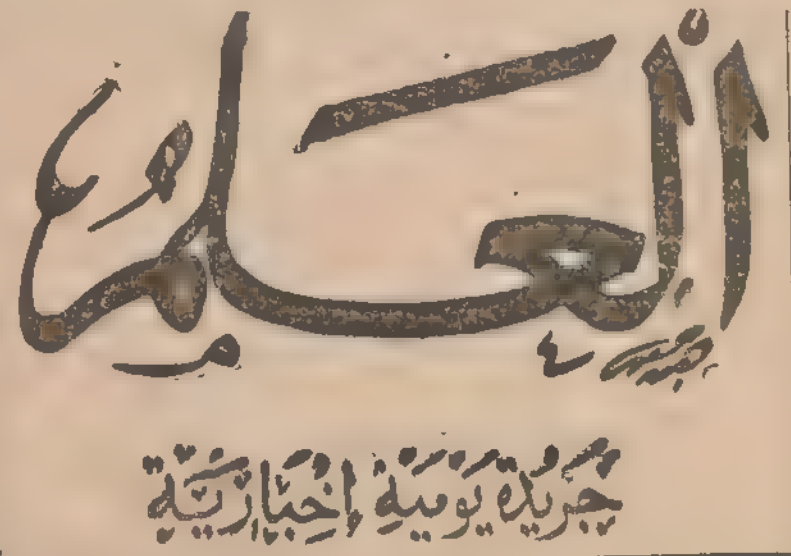 العلم
جَرِيدَة يَوْمِيَّة إِخْبَارِيَّة